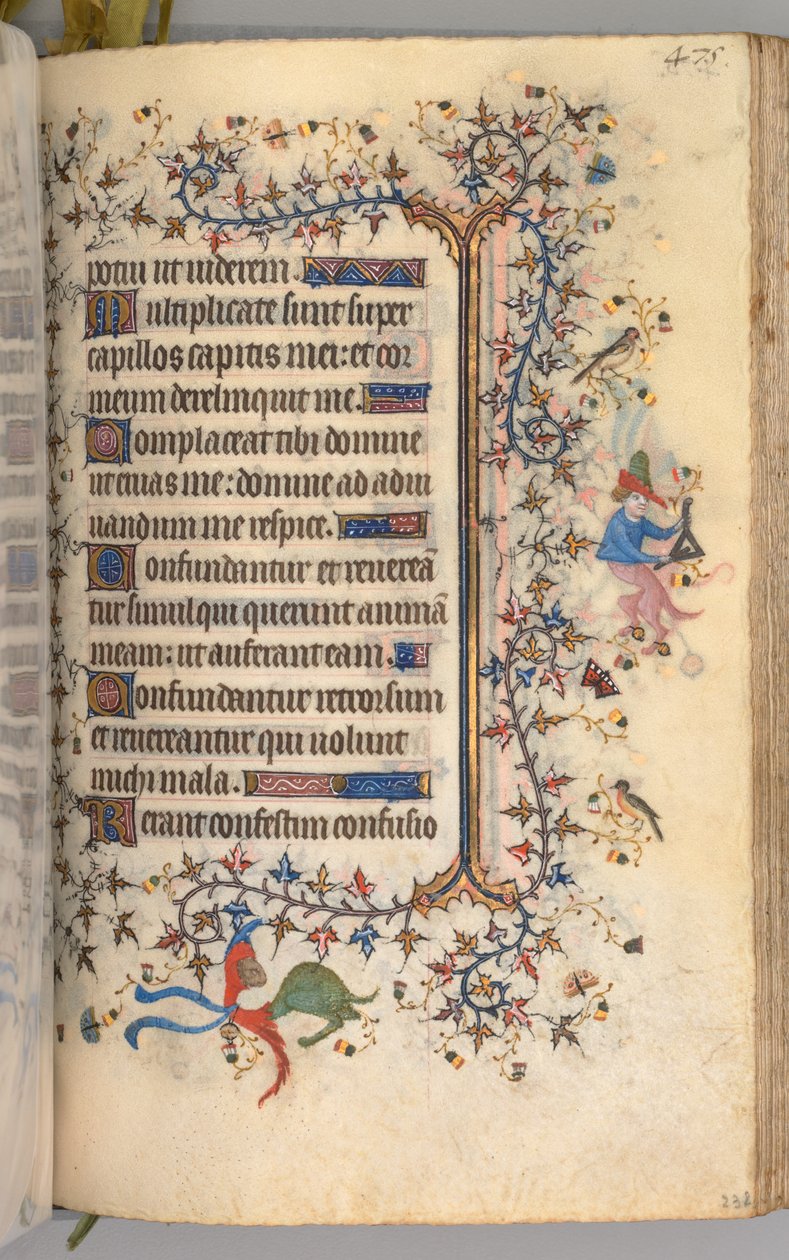 475.
potui ut uiderem.
Multiplicate sunt super
capillos capitis mei: et cor
meum dereliquit me.
Complaceat tibi domine
ut eruas me: domine ad adiu
uandum me respice.
Confundantur et reuereā
tur simul qui querunt animā
meam: ut auferant eam.
Confundantur retrorsum
et reuereantur qui uolunt
michi mala.
Ferant confestim confusio
238